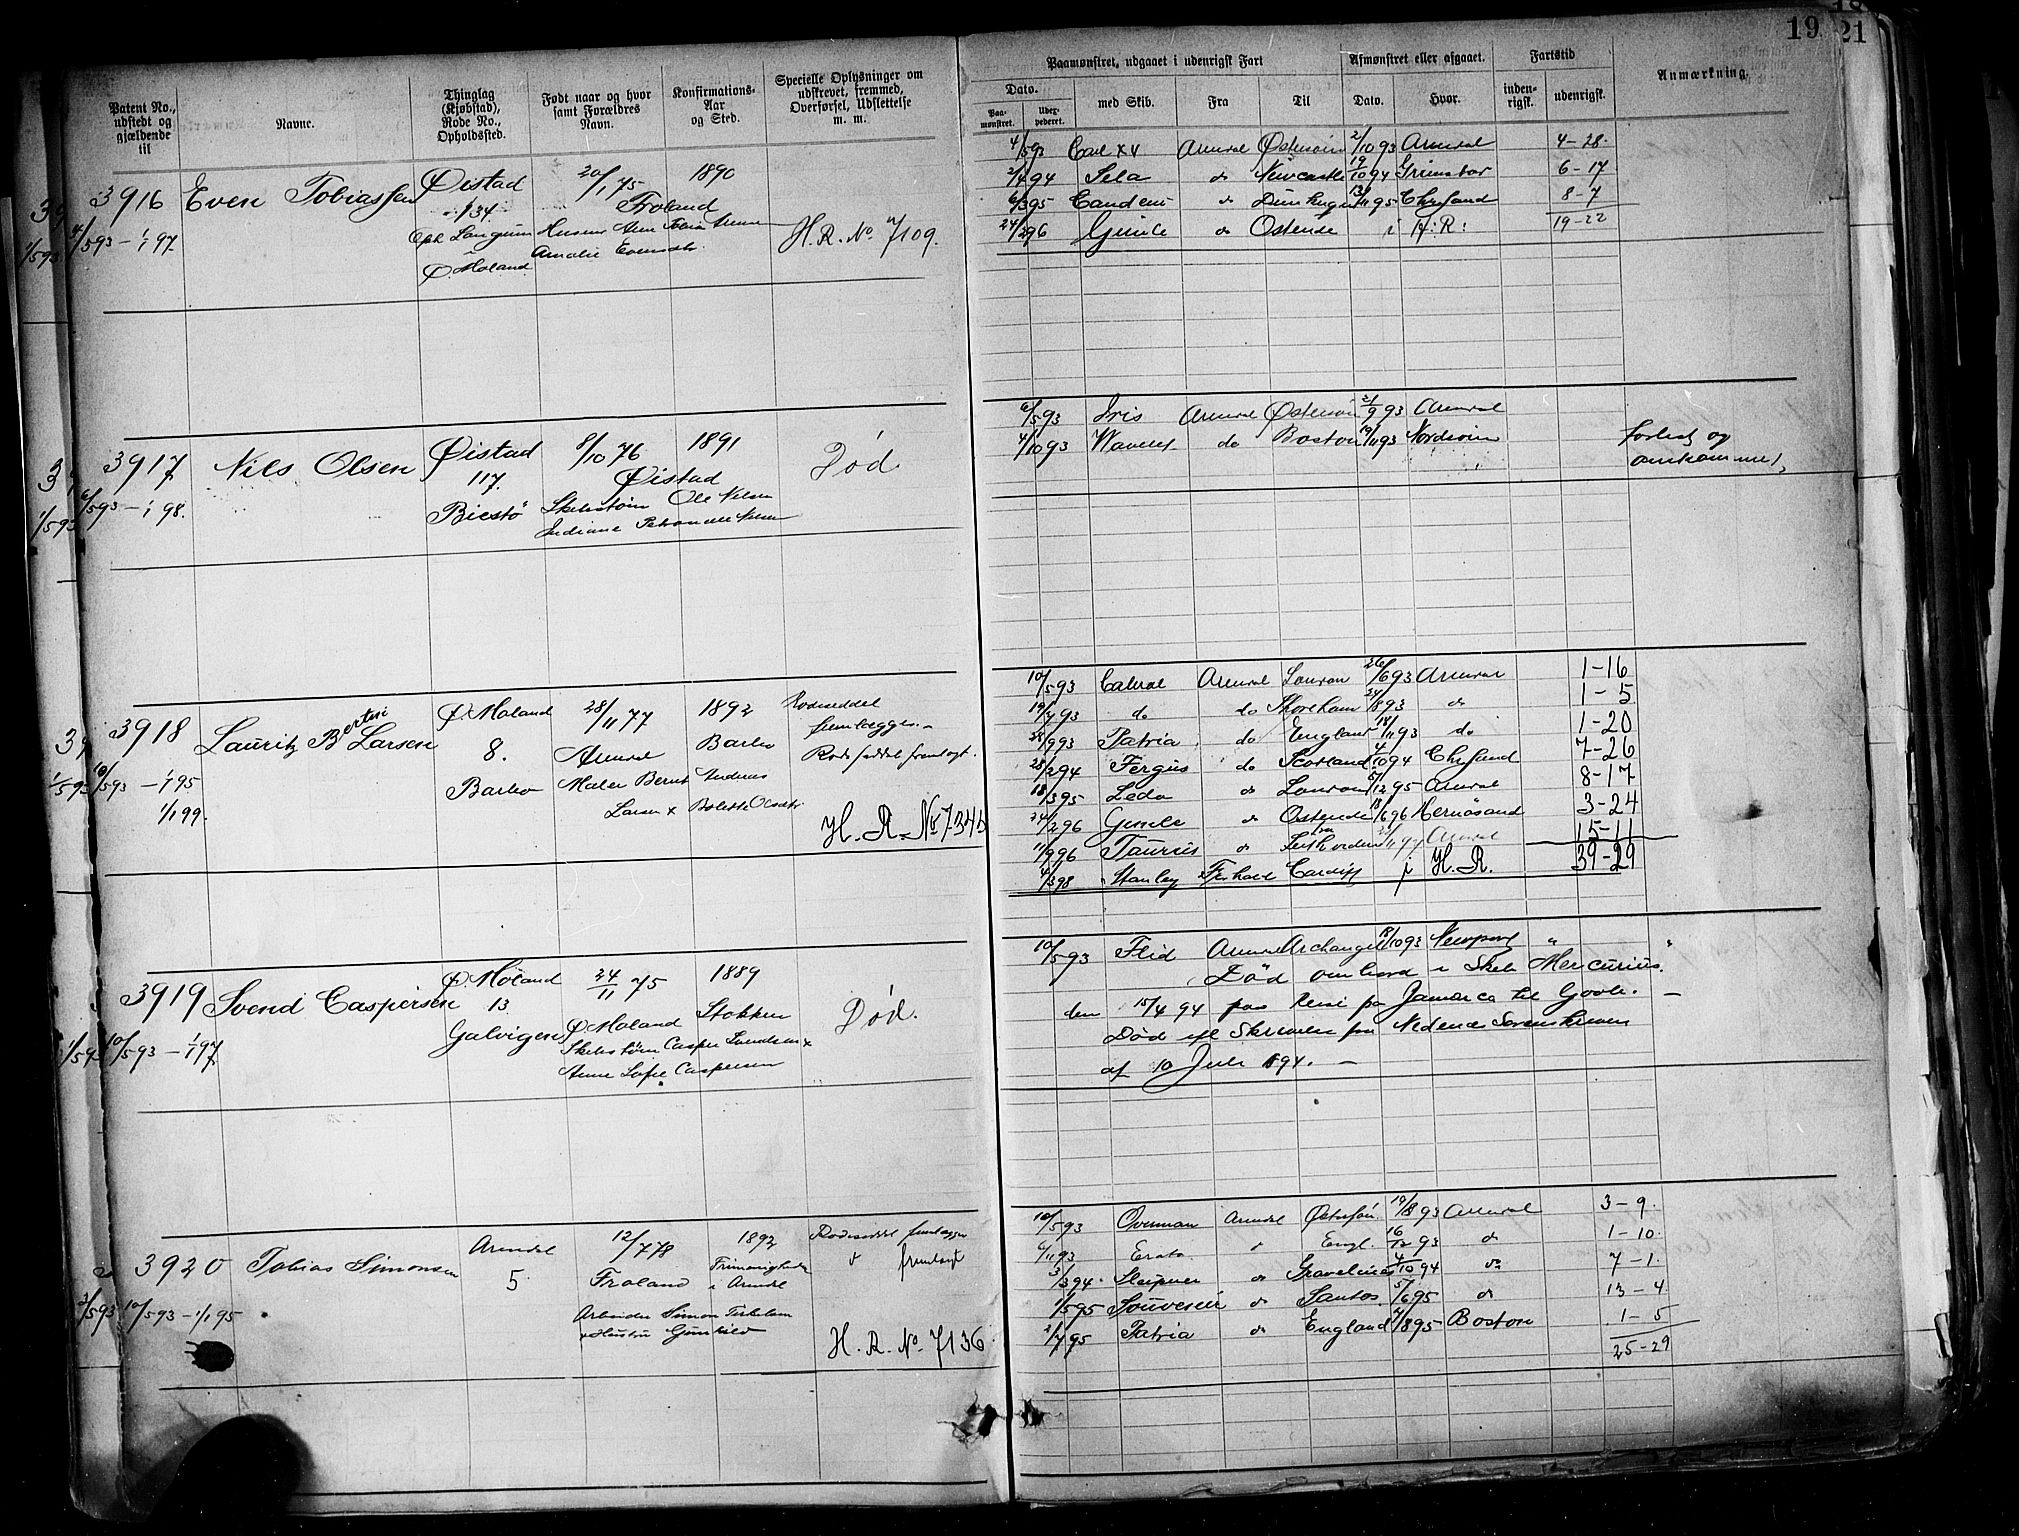 19
21
Patent No., udstedt og gjældende til
Navne.
Thinglag (Kjøbstad), Rode No., Opholdssted.
Født naar og hvor samt Forældres Navn.
Konfirmations-Aar og Sted.
Specielle Oplysninger om udskrevet, fremmed, Overførsel, Udslettelse m. m.
Paamønstret, udgaaet i udenrigsk Fart
Afmønstret eller afgaaet.
Fartstid
Anmærkning
Dato.
Paa-mønstret.
Udex-pederet.
med Skib.
Fra
Til
Dato.
Hvor.
inden-rigsk.
udenrigsk.
3916 Even Tobiassen Øistad 20/1 75 1890
134 Froland
4/5 93 – 1/1 97.
Ø. Moland Amalie Evensdtr.
H.R. No. 7109.
4/5 93 Carl XV Arendal Østersøen 2/10 93 Arendal 4-28.
2/4 94 Sela do Newcastle 19/10 94 Grimstad 6-17
6/3 95 Camden do 13/11 95 Chrsand 8-7
24/2 96 Gimle do Ostende i H:R: 19-22
3917 Nils Olsen Øistad 8/10 76 1891 Død
117. Øistad
6/5 93 – 1/1 98. Biestø Ole Nilsen
6/5 93 Iris Arendal Østersøen 21/9 93 Arendal
4/10 93 Do Boston 19/11 93 Nordsøen forlist og
omkommet,
3918 Lauritz Bertin Larsen Ø. Moland 28/11 77 1892 Rodeseddel
8. Arendal Barbo
10/5 93 – 1/1 95 Barbo Maler Bernt Anders
1/1 99. Larsen x Bolette Olsdtr.
Rodeseddel fremlagt.
H. R. No 7340
10/5 93 Calval Arendal London 26/6 93 Arendal 1-16
19/7 93 do do Shoreham 24/8 93 do 1-5
28/9 93 Patria do England 18/11 93 do 1-20
28/2 94 Fergus do Scotland 4/10 94 Chrsand 7-26
18/3 95 Leda do London 5/12 95 Arendal 8-17
24/2 96 Gimle do Ostende 18/6 96 Hernøsand 3-24
11/9 96 Taurus do Arendal 15-11
4/3 98 Stanley Cardiff i H. R. 39-29
3919 Svend Caspersen Ø. Moland 24/11 75 1889
13 Ø Moland Stokken Død.
10/5 93 – 1/1 97 Galvigen
Anne Sofie Caspersen
10/5 93 Flid Arendal Archangel 18/10 93 Newport " "
Død ombord i Skib Mercurius.
den 15/4 94 paa Reise fra Jamaica til Goole. –
Død efl Skrivelse fra Nedenes Sorenskriveri
af 10 Juli 1894. –
3920 Tobias Simonsen Arendal 12/7 78 1892 Rodeseddel fremlægges
5 Froland i Arendal fremlagt
10/5 93 – 1/1 95
Arbeider Simon Terkelsen
Hustru Gunhild
H. R. No. 7136
10/5 93 Overman Arendal Østersøn 19/8 93 Arendal 3-9.
6/11 93 Erato do Engl. 16/12 93 do 1-10.
3/3 94. Sleipner do Gravelines 4/10 94 do 7-1.
1/5 95 do Santos 5/6 95 do 13-4
2/7 95 Patria do England 7/8 95 Boston 1-5
25-29